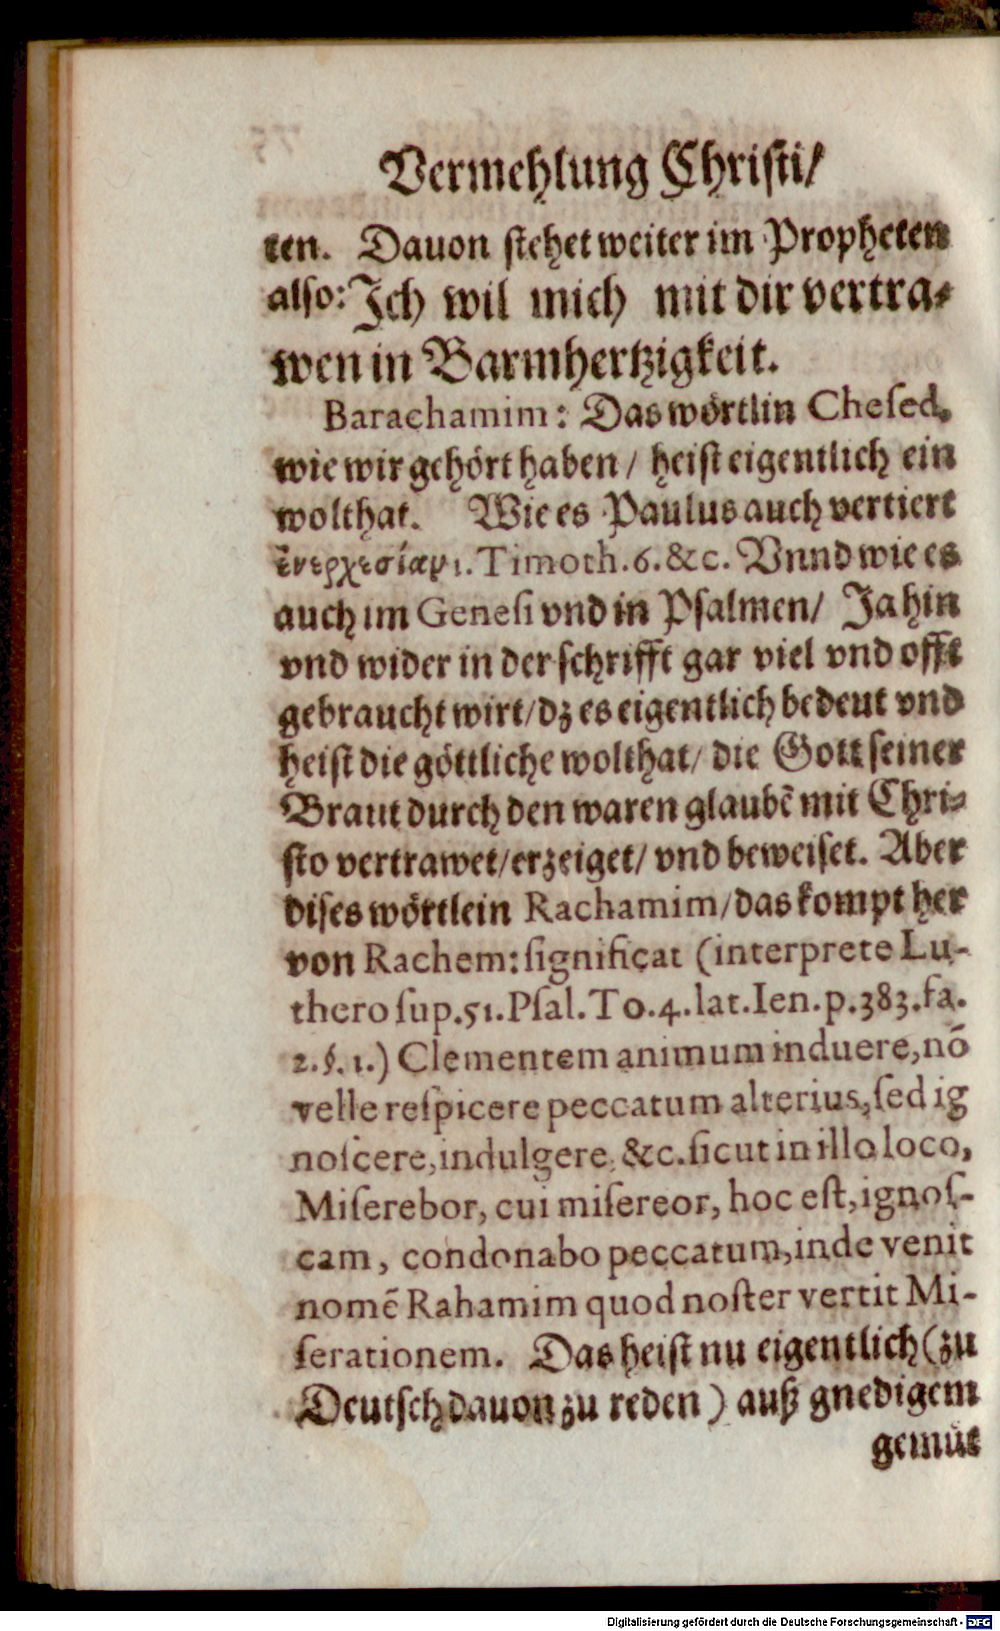 Vermehlung Chriſti/
ten. Dauon ſtehet weiter im Propheten
alſo: Ich wil mich mit dir vertra⸗
wen in Barmhertzigkeit.
Barachamim: Das wörtlin Cheſed,
wie wir gehört haben / heiſt eigentlich ein
wolthat. Wie es Paulus auch vertiert
ἐνερχεσίαν 1. Timoth. 6. &c. Vnnd wie es
auch im Geneſi vnd in Pſalmen/ Ja hin
vnd wider in der ſchrifft gar viel vnd offt
gebraucht wirt/ dz es eigentlich bedeut vnd
heiſt die göttliche wolthat/ die Gott ſeiner
Braut durch den waren glaubẽ mit Chri⸗
ſto vertrawet/ erzeiget/ vnd beweiſet. Aber
diſes wörtlein Rachamim/ das kompt her
von Rachem: ſignificat (interprete Lu-
thero ſup. 51. Pſal. To. 4. lat. Ien. p. 383. fa.
2. §. 1.) Clementem animum induere, nõ
velle reſpicere peccatum alterius, ſed ig
noſcere, indulgere, &c. ſicut in illo loco,
Miſerebor, cui miſereor, hoc eſt, ignoſ-
cam, condonabo peccatum, inde venit
nomẽ Rahamim quod noſter vertit Mi-
ſerationem. Das heiſt nu eigentlich (zu
Deutſch dauon zu reden) auß gnedigem
gemüt
Digitalisierung gefördert durch die Deutsche Forschungsgemeinschaft - DFG